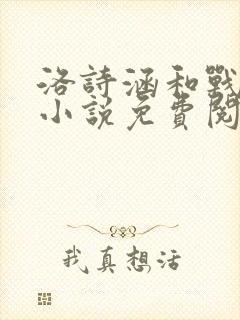 洛詩涵和戰
小說免費閱
我真想活